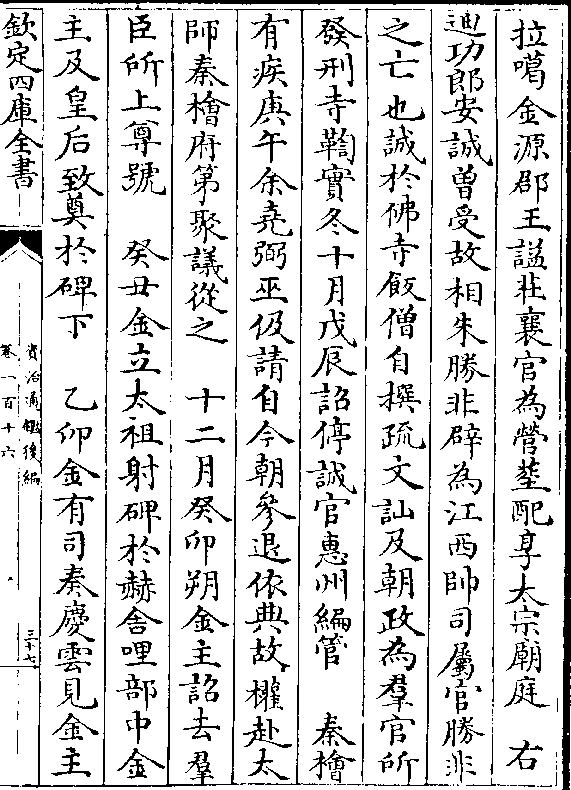 拉噶金源郡王諡壯襄官為營葬配享太宗廟庭　右
迪功郎安誠曽受故相朱勝非辟為江西帥司屬官勝非
之亡也誠於佛寺飯僧自撰疏文訕及朝政為羣官所
發刑寺鞫實冬十月戊辰詔停誠官惠州編管　秦檜
有疾庚午余堯弼巫伋請自今朝參退依典故權赴太
師秦檜府第聚議從之　十二月癸卯朔金主詔去羣
臣所上尊號　癸丑金立太祖射碑於赫舍哩部中金
主及皇后致奠於碑下　乙卯金有司奏慶雲見金主
欽定四庫全書
資治通鑑後編
卷一百十六
三十七